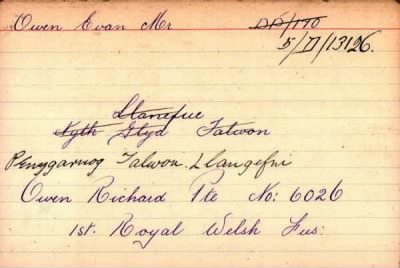 Owen Evan Mr
DP/170
5/D/13126.
Llanefue
Nyth Glyd Talwon
Penygarnog Talwon. Llangefni
Owen Richard Pte No: 6026
1st. Royal Welsh Fus: